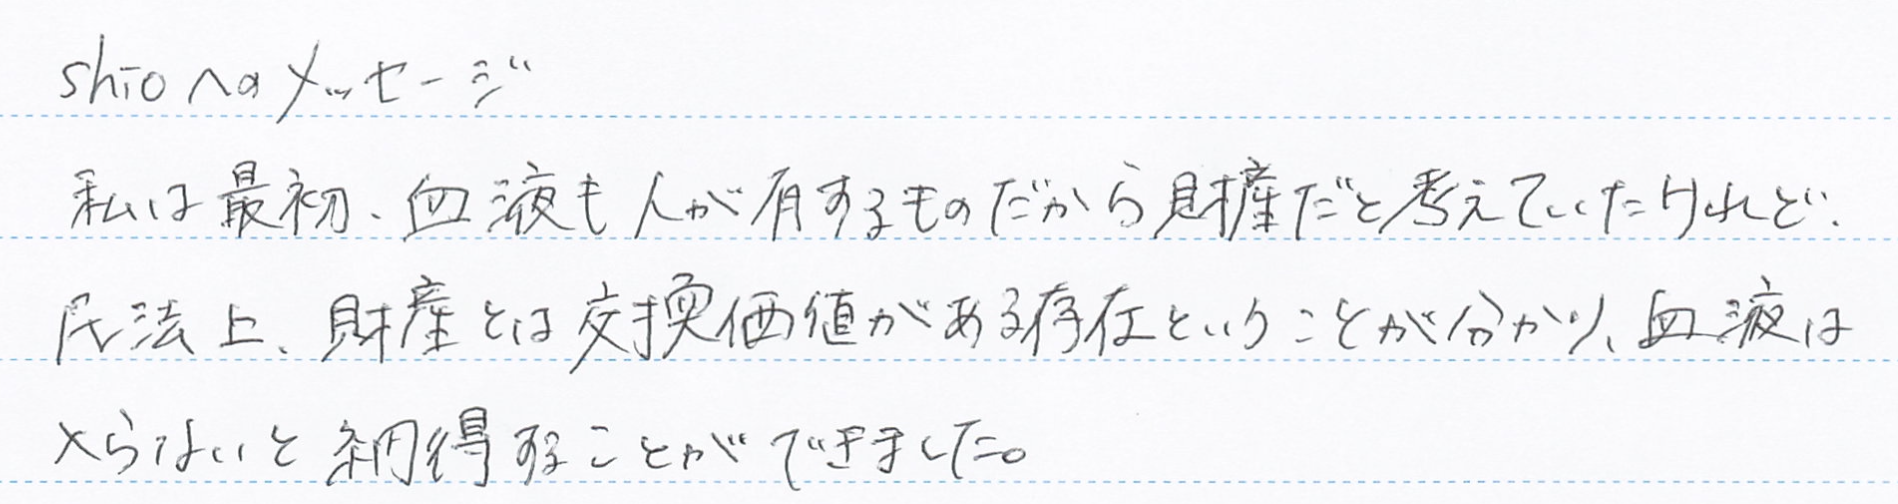 shioへのメッセージ
私は最初、血液も人が有するものだから財産だと考えていたけれど、
民法上、財産とは交換価値がある存在ということが分かり、血液は
入らないと納得することができました。